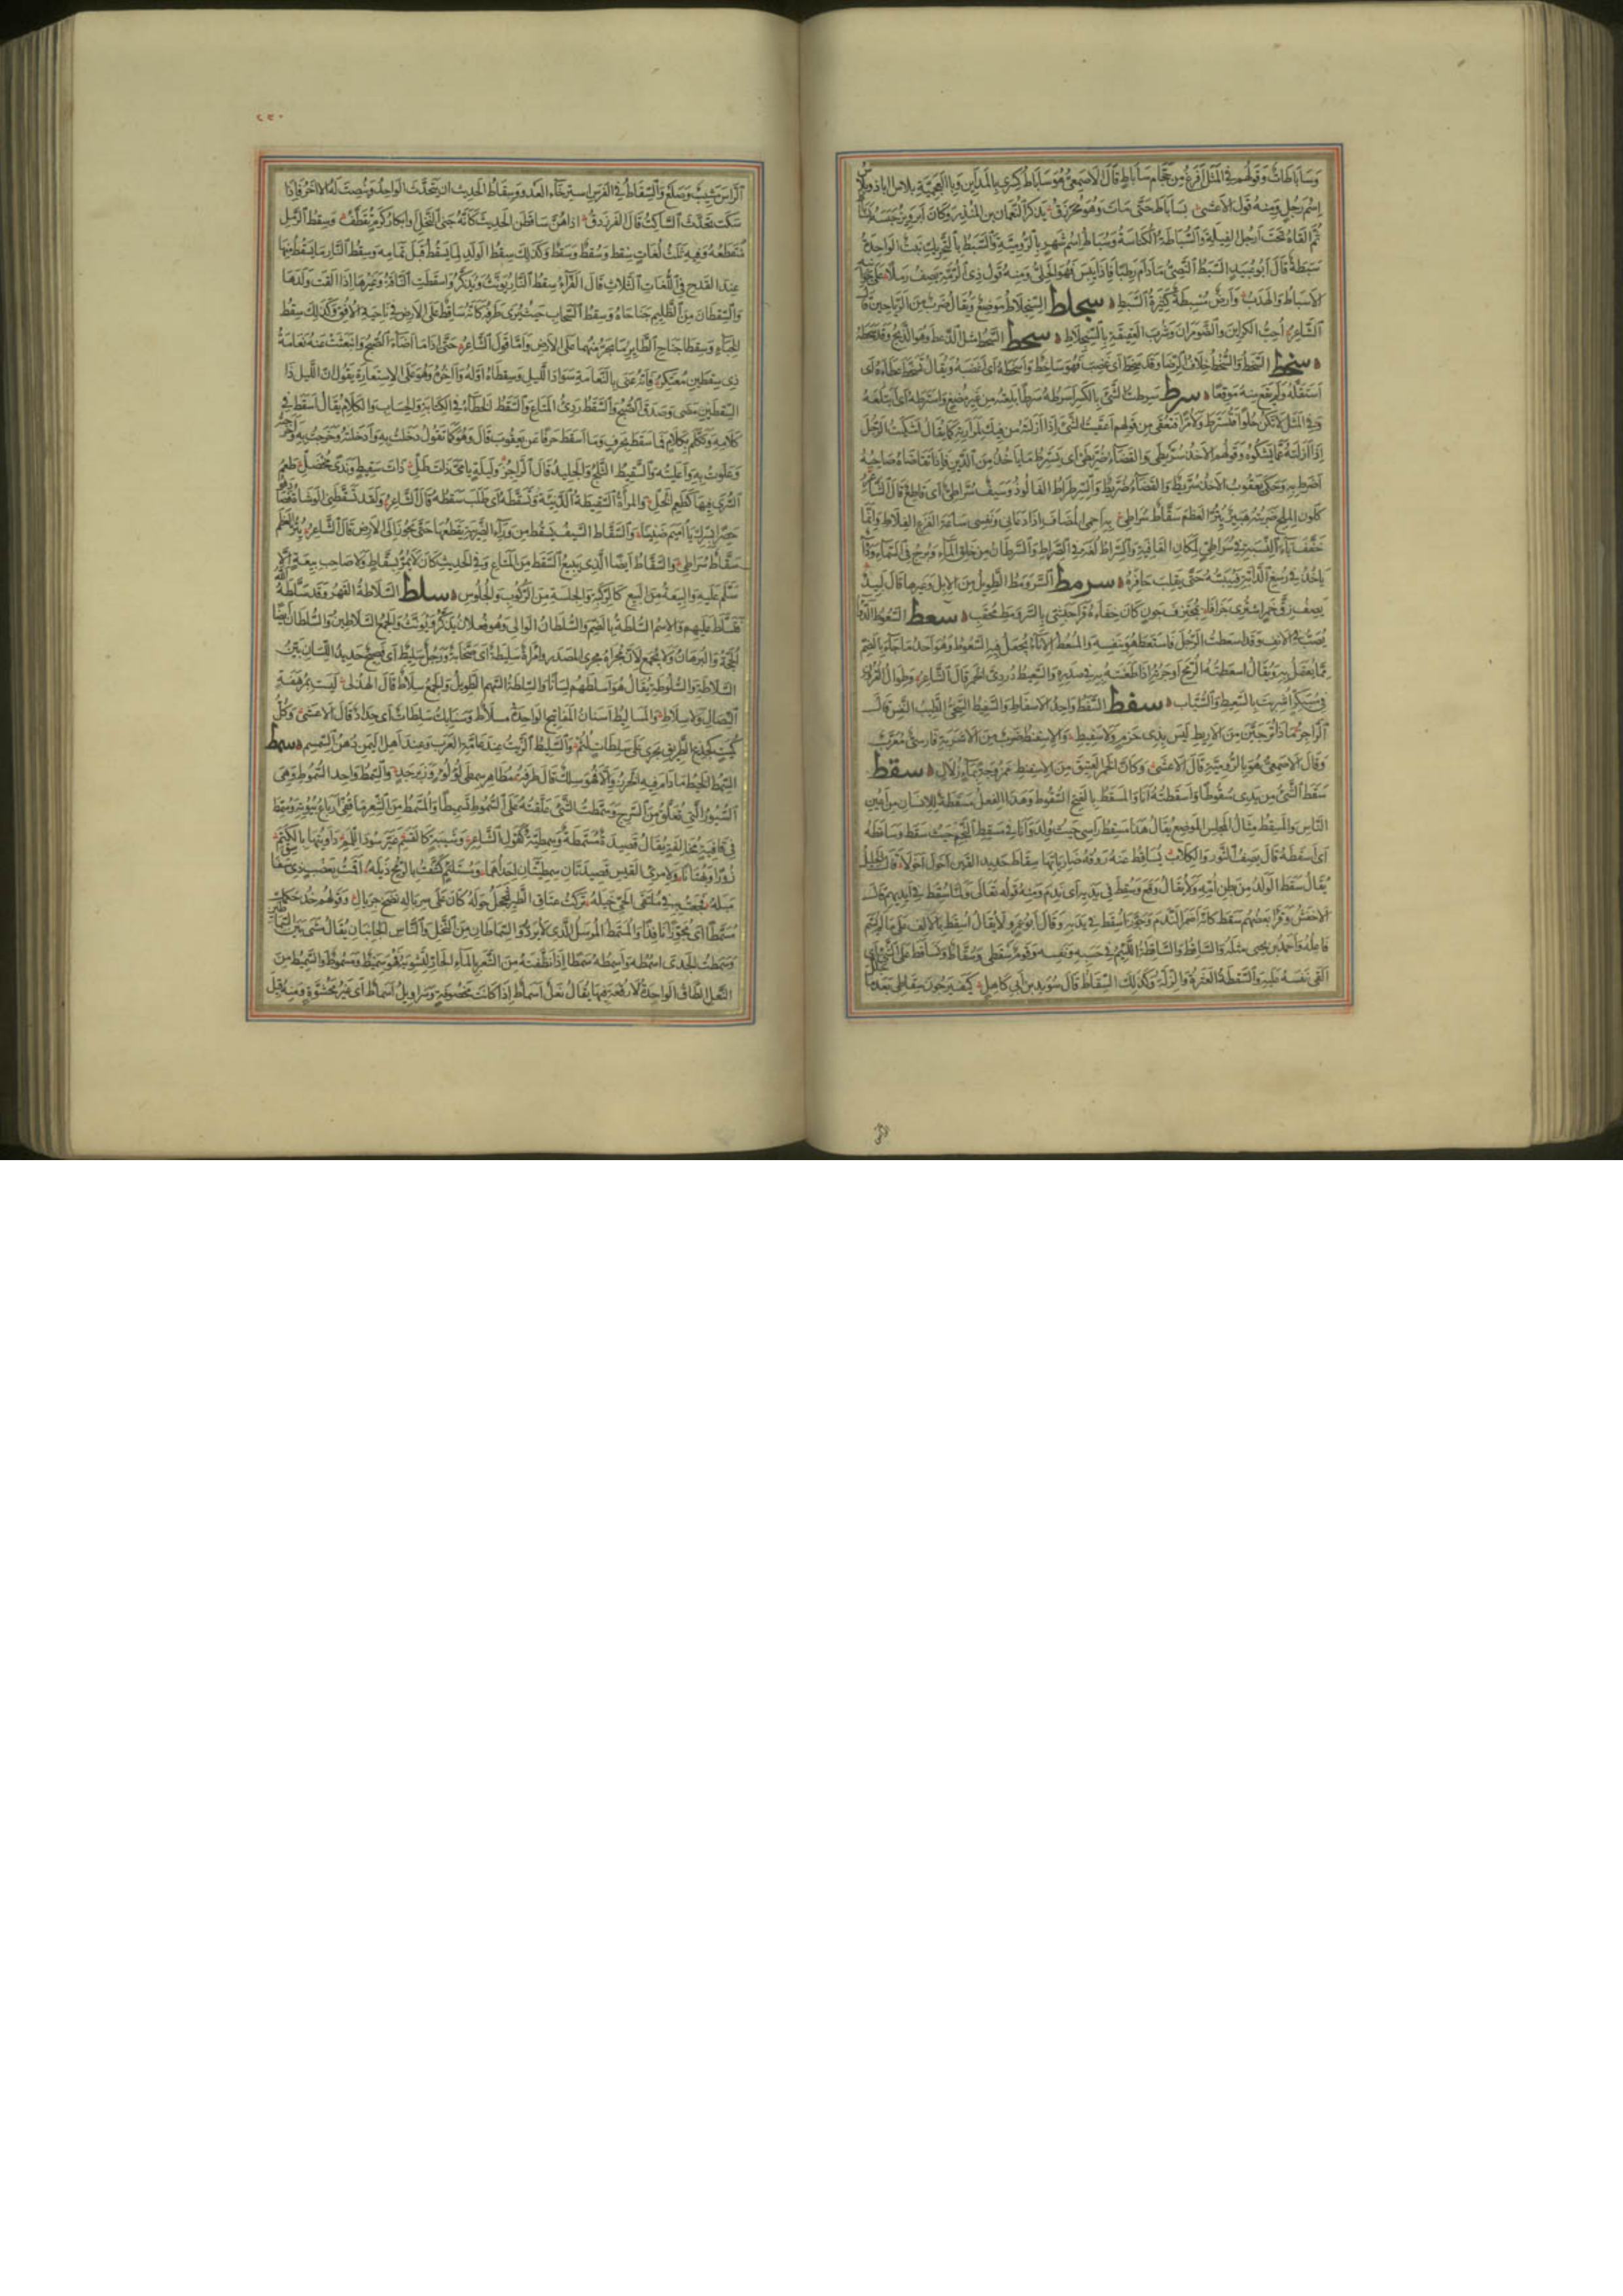 وَسَابَاطَاتٌ وَقَوْلُهُمْ فِي الْمَثَلِ أَفْرَغُ مِنْ حَجَّامِ سَابَاطٍ قَالَ الْأَصْمَعِيُّ هُوَ سَابَاطُ كِسْرَى بِالْمَدَائِنِ وَبِالْعَجَمِيَّةِ بلاس اباذ وبلاس
اِسْمُ رَجُلٍ وَمِنْهُ قَوْلُ الْأَعْشَى بِسَابَاطَ حَتَّى مَاتَ وَهُوَ مُحَرْزَقُ يَذْكُرُ النُّعْمَانَ بْنَ الْمُنْذِرِ وَكَانَ أَبَرْوِيزُ حَبَسَهُ بِسَابَاطَ
ثُمَّ أَلْقَاهُ تَحْتَ أَرْجُلِ الْفِيَلَةِ وَالسُّبَاطَةُ الْكُنَاسَةُ وَسُبَاطُ اِسْمُ شَهْرٍ بِالرُّومِيَّةِ وَالسَّبَطُ بِالتَّحْرِيكِ نَبْتٌ الْوَاحِدَةُ
سَبَطَةٌ قَالَ أَبُو عُبَيْدٍ السَّبَطُ النَّصِيُّ مَا دَامَ رَطْبًا فَإِذَا يَبِسَ فَهُوَ الْحَلِيُّ وَمِنْهُ قَوْلُ ذِي الرُّمَّةِ يَصِفُ رَمْلًا
الْأَسْبَاطُ وَالْهَدَبُ وَأَرْضٌ مُسْبِطَةٌ كَثِيرَةُ السَّبَطِ سجلط السِّجِلَّاطُ مَوْضِعٌ وَيُقَالُ ضَرْبٌ مِنَ الرَّيَاحِينِ قَالَ
الشَّاعِرُ أُحِبُّ الْكَرَائِنَ وَالضَّوْمَرَانَ وَشُرْبَ الْعَتِيقَةِ بِالسِّجِلَّاطِ سحط السَّحْطُ مِثْلُ الذَّعْطِ وَهُوَ الذَّبْحُ وَقَدْ سَحَطَهُ
سخط السَّخَطُ وَالسُّخْطُ خِلَافُ الرِّضَا وَقَدْ سَخِطَ أَيْ غَضِبَ فَهُوَ سَاخِطٌ وَأَسْخَطَهُ أَيْ أَغْضَبَهُ وَيُقَالُ تَسَخَّطَ عَطَاءَهُ أَيْ
اسْتَقَلَّهُ وَلَمْ يَقَعْ مِنْهُ مَوْقِعًا سرط سَرِطْتُ الشَّيْءَ بِالْكَسْرِ أَسْرَطُهُ سَرْطًا بَلِعْتُهُ مِنْ غَيْرِ مَضْغٍ وَاسْتَرَطَهُ أَيْ ابْتَلَعَهُ
وَفِي الْمَثَلِ لَا تَكُنْ حُلْوًا فَتُسْتَرَطَ وَلَا مُرًّا فَتُعْقَى مِنْ قَوْلِهِمْ أَعْقَيْتُ الشَّيْءَ إِذَا أَزَلْتَهُ مِنْ فِيكَ لِمَرَارَتِهِ كَمَا يُقَالُ أَشْكَيْتُ الرَّجُلَ
إِذَا أَزَلْتَهُ عَمَّا يَشْكُوهُ وَقَوْلُهُمْ الْأَخْذُ سُرَّيْطَى وَالْقَضَاءُ ضُرَّيْطَى أَيْ يَسْتَرِطُ مَا يَأْخُذُ مِنَ الدَّيْنِ فَإِذَا تَقَاضَاهُ صَاحِبُهُ
أَضْرَطَ بِهِ وَحَكَى يَعْقُوبُ الْأَخْذُ سُرَّيْطٌ وَالْقَضَاءُ ضُرَّيْطٌ وَالسِّرِطْرَاطُ الْفَالُوذُ وَسَيْفٌ سُرَاطِيٌّ أَيْ قَاطِعٌ قَالَ الشَّاعِرُ
كَلَوْنِ الْمِلْحِ ضَرْبَتُهُ هَبِيرٌ يُتِرُّ الْعَظْمَ سَقَّاطٌ سُرَاطِي بِهِ أَحْمِي الْمُضَافَ إِذَا دَعَانِي وَنَفْسِي سَاعَةَ الْفَزَعِ الْفِلَاطِ وَإِنَّمَا
خَفَّفَ يَاءَ النِّسْبَةِ فِي سُرَاطِيٍّ لِمَكَانِ الْقَافِيَةِ وَالسِّرَاطُ لُغَةٌ فِي الصِّرَاطِ وَالسَّرَطَانُ مِنْ خَلْقِ الْمَاءِ وَبُرْجٌ فِي السَّمَاءِ وَدَاءٌ
يَأْخُذُ فِي رُسْغِ الدَّابَّةِ فَيُيَبِّسُهُ حَتَّى يَقْلِبَ حَافِرَهُ سرمط السَّرَوْمَطُ الطَّوِيلُ مِنَ الْإِبِلِ وَغَيْرِهَا قَالَ لَبِيدٌ
يَصِفُ زِقَّ خَمْرٍ اشْتُرِيَ جُزَافًا بِمُجْتَزِفٍ جَوْنٍ كَأَنَّ خِفَاءَهُ قَرَا حَبَشِيٍّ بِالسَّرَوْمَطِ مُحْقَبِ سعط السَّعُوطُ الدَّوَاءُ
يُصَبُّ فِي الْأَنْفِ وَقَدْ أَسْعَطْتُ الرَّجُلَ فَاسْتَعَطَ هُوَ بِنَفْسِهِ وَالْمُسْعُطُ الْإِنَاءُ يُجْعَلُ فِيهِ السَّعُوطُ وَهُوَ أَحَدُ مَا جَاءَ بِالضَّمِّ
مِمَّا يُعْتَمَلُ بِهِ وَيُقَالُ أَسْعَطْتُهُ الرُّمْحَ إِذَا طَعَنْتَهُ بِهِ فِي صَدْرِهِ وَالسَّعِيطُ دُرْدِيُّ الْخَمْرِ قَالَ الشَّاعِرُ وَطِوَالِ الْقُرُونِ
فِي مُسْبَكِرٍّ أُشْرِبَتْ بِالسَّعِيطِ وَالسَّبَّابِ سفط السَّفَطُ وَاحِدُ الْأَسْفَاطِ وَالسَّفِيطُ السَّخِيُّ الطَّيِّبُ النَّفْسِ قَالَ
الرَّاجِزُ مَاذَا تُرَجِّينَ مِنَ الْأَرِيطِ لَيْسَ بِذِي حَزْمٍ وَلَا سَفِيطِ وَالْإِسْفِنْطُ ضَرْبٌ مِنَ الْأَشْرِبَةِ فَارِسِيٌّ مُعَرَّبٌ
وَقَالَ الْأَصْمَعِيُّ هُوَ بِالرُّومِيَّةِ قَالَ الْأَعْشَى وَكَأَنَّ الْخَمْرَ الْعَتِيقَ مِنَ الْإِسْفِنْطِ مَمْزُوجَةٌ بِمَاءٍ زُلَالِ سقط
سَقَطَ الشَّيْءُ مِنْ يَدِي سُقُوطًا وَأَسْقَطْتُهُ أَنَا وَالْمَسْقَطُ بِالْفَتْحِ السُّقُوطُ وَهَذَا الْفِعْلُ مَسْقَطَةٌ لِلْإِنْسَانِ مِنْ أَعْيُنِ
النَّاسِ وَالْمَسْقِطُ مِثَالُ الْمَجْلِسِ الْمَوْضِعُ يُقَالُ هَذَا مَسْقِطُ رَأْسِي حَيْثُ وُلِدَ وَأَتَانَا فِي مَسْقِطِ النَّجْمِ حَيْثُ سَقَطَ وَسَاقَطَهُ
أَيْ أَسْقَطَهُ قَالَ يَصِفُ الثَّوْرَ وَالْكِلَابَ يُسَاقِطُ عَنْهُ رَوْقُهُ ضَارِيَاتِهَا سِقَاطَ حَدِيدِ الْقَيْنِ أَخْوَلَ أَخْوَلَا قَالَ الْخَلِيلُ
يُقَالُ سَقَطَ الْوَلَدُ مِنْ بَطْنِ أُمِّهِ وَلَا يُقَالُ وَقَعَ وَسُقِطَ فِي يَدَيْهِ أَيْ نَدِمَ وَمِنْهُ قَوْلُهُ تَعَالَى وَلَمَّا سُقِطَ فِي أَيْدِيهِمْ قَالَ
الْأَخْفَشُ وَقَرَأَ بَعْضُهُمْ سَقَطَ كَأَنَّهُ أَضْمَرَ النَّدَمَ وَجَوَّزَ أُسْقِطَ فِي يَدَيْهِ وَقَالَ أَبُو عَمْرٍو لَا يُقَالُ أُسْقِطَ بِالْأَلِفِ عَلَى مَا لَمْ يُسَمَّ
فَاعِلُهُ وَأَحْمَدُ بْنُ يَحْيَى مِثْلُهُ وَالسَّاقِطُ وَالسَّاقِطَةُ اللَّئِيمُ فِي حَسَبِهِ وَنَفْسِهِ وَقَوْمٌ سَقْطَى وَسُقَّاطٌ وَتَسَاقَطَ عَلَى الشَّيْءِ أَيْ
أَلْقَى نَفْسَهُ عَلَيْهِ وَالسَّقْطَةُ الْعَثْرَةُ وَالزَّلَّةُ وَكَذَلِكَ السِّقَاطُ قَالَ سُوَيْدُ بْنُ أَبِي كَاهِلٍ كَيْفَ يَرْجُونَ سِقَاطِي بَعْدَ مَا
٢٢٠
الرَّأْسَ مَشِيبٌ وَصَلَعْ وَالسِّقَاطُ فِي الْفَرَسِ اسْتِرْخَاءُ الْعَدْوِ وَسِقَاطُ الْحَدِيثِ أَنْ يَتَحَدَّثَ الْوَاحِدُ وَيُنْصِتَ لَهُ الْآخَرُ فَإِذَا
سَكَتَ تَحَدَّثَ السَّاكِتُ قَالَ الْفَرَزْدَقُ إِذَا هُنَّ سَاقَطْنَ الْحَدِيثَ كَأَنَّهُ جَنَى النَّحْلِ أَوْ أَبْكَارُ كَرْمٍ تُقَطَّفُ وَسِقْطُ الرَّمْلِ
مُنْقَطَعُهُ وَفِيهِ ثَلَاثُ لُغَاتٍ سِقْطٌ وَسُقْطٌ وَسَقْطٌ وَكَذَلِكَ سِقْطُ الْوَلَدِ لِمَا يَسْقُطُ قَبْلَ تَمَامِهِ وَسِقْطُ النَّارِ مَا يَسْقُطُ مِنْهَا
عِنْدَ الْقَدْحِ فِي اللُّغَاتِ الثَّلَاثِ قَالَ الْفَرَّاءُ سِقْطُ النَّارِ يُؤَنَّثُ وَيُذَكَّرُ وَأَسْقَطَتِ النَّاقَةُ وَغَيْرُهَا إِذَا أَلْقَتْ وَلَدَهَا
وَالسِّقْطَانِ مِنَ الظَّلِيمِ جَنَاحَاهُ وَسِقْطُ السَّحَابِ حَيْثُ يُرَى طَرَفُهُ كَأَنَّهُ سَاقِطٌ عَلَى الْأَرْضِ فِي نَاحِيَةِ الْأُفُقِ وَكَذَلِكَ سِقْطُ
الْخِبَاءِ وَسِقْطَا جَنَاحِ الطَّائِرِ مَا يَجُرُّ مِنْهُمَا عَلَى الْأَرْضِ وَأَمَّا قَوْلُ الشَّاعِرِ حَتَّى إِذَا مَا أَضَاءَ الصُّبْحُ وَانْبَعَثَتْ عَنْهُ نَعَامَةُ
ذِي سِقْطَيْنِ مُعْتَكِرِ فَإِنَّهُ عَنَى بِالنَّعَامَةِ سَوَادَ اللَّيْلِ وَسِقْطَاهُ أَوَّلُهُ وَآخِرُهُ وَهُوَ عَلَى الِاسْتِعَارَةِ يَقُولُ إِنَّ اللَّيْلَ ذَا
السِّقْطَيْنِ مَضَى وَصَدَقَ الصُّبْحُ وَالسَّقَطُ رَدِيءُ الْمَتَاعِ وَالسَّقَطُ الْخَطَأُ فِي الْكِتَابَةِ وَالْحِسَابِ وَالْكَلَامِ يُقَالُ أَسْقَطَ فِي
كَلَامِهِ وَتَكَلَّمَ بِكَلَامٍ فَمَا سَقَطَ بِحَرْفٍ وَمَا أَسْقَطَ حَرْفًا عَنْ يَعْقُوبَ قَالَ وَهُوَ كَمَا تَقُولُ دَخَلْتُ بِهِ وَأَدْخَلْتُهُ وَخَرَجْتُ بِهِ وَأَخْرَجْتُهُ
وَعَلَوْتُ بِهِ وَأَعْلَيْتُهُ وَالسَّقِيطُ الثَّلْجُ وَالْجَلِيدُ قَالَ الرَّاجِزُ وَلَيْلَةٍ يَا مَيَّ ذَاتِ طَلِّ ذَاتِ سَقِيطٍ وَنَدًى مُخْضَلِّ طَعْمُ
السُّرَى فِيهَا كَطَعْمِ الْخَلِّ وَالْمَرْأَةُ السَّقِيطَةُ الدَّنِيَّةُ وَتَسَقَّطَهُ أَيْ طَلَبَ سَقَطَهُ قَالَ الشَّاعِرُ وَلَقَدْ تَسَقَّطَنِي الْوُشَاةُ فَصَادَفُوا
حَصِرًا بِسِرِّكِ يَا أُمَيْمَ ضَنِينَا وَالسَّقَّاطُ السَّيْفُ يَسْقُطُ مِنْ وَرَاءِ الضَّرِيبَةِ يَقْطَعُهَا حَتَّى يَجُوزَ إِلَى الْأَرْضِ قَالَ الشَّاعِرُ يُتِرُّ الْعَظْمَ
سَقَّاطٌ سُرَاطِي وَالسَّقَّاطُ أَيْضًا الَّذِي يَبِيعُ السَّقَطَ مِنَ الْمَتَاعِ وَفِي الْحَدِيثِ كَانَ لَا يَمُرُّ بِسَقَّاطٍ وَلَا صَاحِبِ بِيعَةٍ إِلَّا
سَلَّمَ عَلَيْهِ وَالْبِيعَةُ مِنَ الْبَيْعِ كَالرِّكْبَةِ وَالْجِلْسَةِ مِنَ الرُّكُوبِ وَالْجُلُوسِ سلط السَّلَاطَةُ الْقَهْرُ وَقَدْ سَلَّطَهُ اللَّهُ
فَتَسَلَّطَ عَلَيْهِمْ وَالِاسْمُ السُّلْطَةُ بِالضَّمِّ وَالسُّلْطَانُ الْوَالِي وَهُوَ فُعْلَانُ يُذَكَّرُ وَيُؤَنَّثُ وَالْجَمْعُ السَّلَاطِينُ وَالسُّلْطَانُ أَيْضًا
الْحُجَّةُ وَالْبُرْهَانُ وَلَا يُجْمَعُ لِأَنَّ مُجْرَاهُ مُجْرَى الْمَصْدَرِ وَامْرَأَةٌ سَلِيطَةٌ أَيْ صَخَّابَةٌ وَرَجُلٌ سَلِيطٌ أَيْ فَصِيحٌ حَدِيدُ اللِّسَانِ بَيِّنُ
السَّلَاطَةِ وَالسُّلُوطَةِ يُقَالُ هُوَ أَسْلَطُهُمْ لِسَانًا وَالسِّلْطَةُ السَّهْمُ الطَّوِيلُ وَالْجَمْعُ سِلَاطٌ قَالَ الْهُذَلِيُّ لَيْسَتْ بِمُرْهَفَةِ
النِّصَالِ وَلَا سِلَاطِ وَالْمَسَالِيطُ أَسْنَانُ الْمَفَاتِيحِ الْوَاحِدَةُ مِسْلَاطٌ وَسَنَابِكُ سَلِطَاتٌ أَيْ حِدَادٌ قَالَ الْأَعْشَى وَكُلِّ
كُمَيْتٍ كَجِذْعِ الطَّرِيقِ يَجْرِي عَلَى سَلِطَاتٍ لُثُمْ وَالسَّلِيطُ الزَّيْتُ عِنْدَ عَامَّةِ الْعَرَبِ وَعِنْدَ أَهْلِ الْيَمَنِ دُهْنُ السِّمْسِمِ سمط
السِّمْطُ الْخَيْطُ مَا دَامَ فِيهِ الْخَرَزُ وَإِلَّا فَهُوَ سِلْكٌ قَالَ طَرَفَةُ مُظَاهِرُ سِمْطَيْ لُؤْلُؤٍ وَزَبَرْجَدِ وَالسِّمْطُ وَاحِدُ السُّمُوطِ وَهِيَ
السُّيُورُ الَّتِي تُعَلَّقُ مِنَ السَّرْجِ وَسَمَّطْتُ الشَّيْءَ عَلَّقْتُهُ عَلَى السُّمُوطِ تَسْمِيطًا وَالْمُسَمَّطُ مِنَ الشِّعْرِ مَا قُفِّيَ أَرْبَاعُ بُيُوتِهِ وَسُمِّطَ
فِي قَافِيَةٍ مُخَالِفَةٍ يُقَالُ قَصِيدَةٌ مُسَمَّطَةٌ وَسِمْطِيَّةٌ كَقَوْلِ الشَّاعِرِ وَشَيْبَةٍ كَالْقَسَمِ غَيَّرَ سُودَ اللِّمَمِ دَاوَيْتُهَا بِالْكَتَمِ
زُورًا وَبُهْتَانًا وَلِامْرِئِ الْقَيْسِ قَصِيدَتَانِ سِمْطِيَّتَانِ إِحْدَاهُمَا وَمُسْتَلْئِمٍ كَشَّفْتُ بِالرُّمْحِ ذَيْلَهُ أَقَمْتُ بِعَضْبٍ ذِي سَفَاسِقَ
مَيْلَهُ فَجَعْتُ بِهِ فِي مُلْتَقَى الْحَيِّ خَيْلَهُ تَرَكْتُ عِتَاقَ الطَّيْرِ تَحْجُلُ حَوْلَهُ كَأَنَّ عَلَى سِرْبَالِهِ نَضْحَ جِرْيَالِ وَقَوْلُهُمْ خُذْ حُكْمَكَ
مُسَمَّطًا أَيْ مُجَوَّزًا نَافِذًا وَالْمُسَمَّطُ الْمُرْسَلُ الَّذِي لَا يُرَدُّ وَالسِّمَاطَانِ مِنَ النَّخْلِ وَالنَّاسِ الْجَانِبَانِ يُقَالُ مَشَى بَيْنَ السِّمَاطَيْنِ
وَسَمَطْتُ الْجَدْيَ أَسْمِطُهُ وَأَسْمُطُهُ سَمْطًا إِذَا نَظَّفْتَهُ مِنَ الشَّعَرِ بِالْمَاءِ الْحَارِّ لِتَشْوِيَهُ فَهُوَ سَمِيطٌ وَمَسْمُوطٌ وَالسَّمِيطُ مِنَ
النَّعْلِ الطَّاقُ الْوَاحِدُ لَا رُقْعَةَ فِيهَا يُقَالُ نَعْلٌ أَسْمَاطٌ إِذَا كَانَتْ غَيْرَ مَخْصُوفَةٍ وَسَرَاوِيلُ أَسْمَاطٌ أَيْ غَيْرُ مَحْشُوَّةٍ وَمِنْهُ قِيلَ